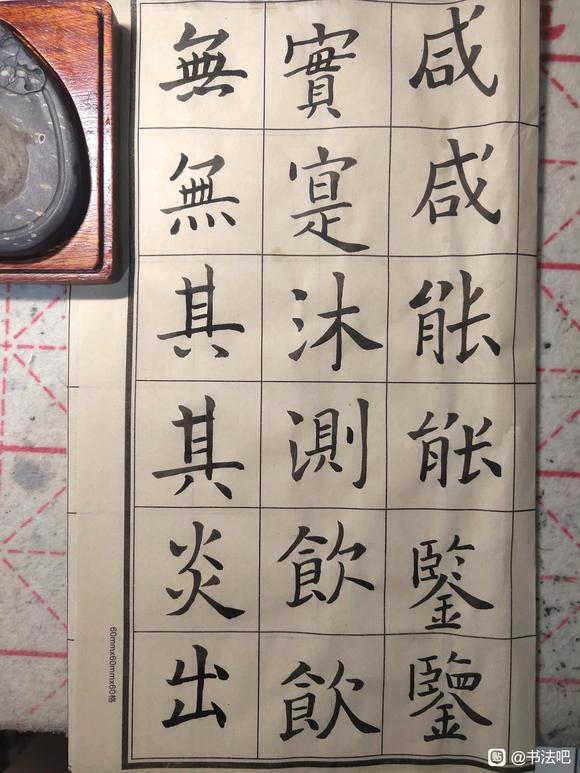 咸咸能能鑒鑒
實寔沐測飲飲
無無其其炎出
60mmx60mmx60格
贴 @书法吧